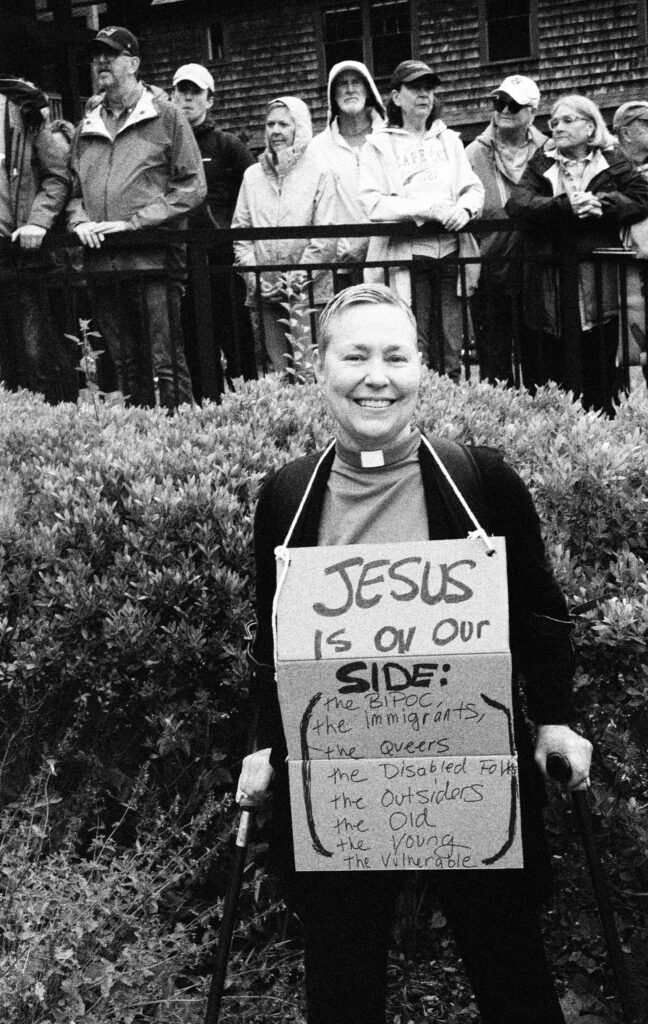 CAPE COD
JESUS
IS ON OUR
SIDE:
the BIPOC,
the immigrants,
the Queers
the Disabled Folks
the Outsiders
the Old
the Young
the Vulnerable